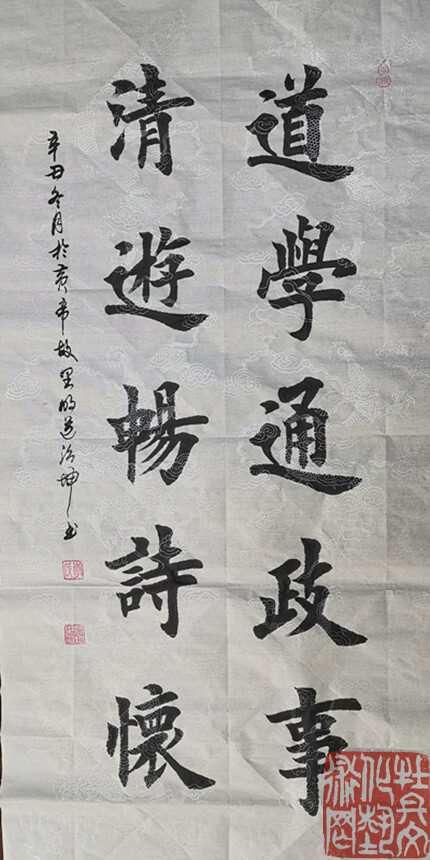 道學通政事
清遊暢詩懷
辛丑冬月於黃帝故里明道治坤書